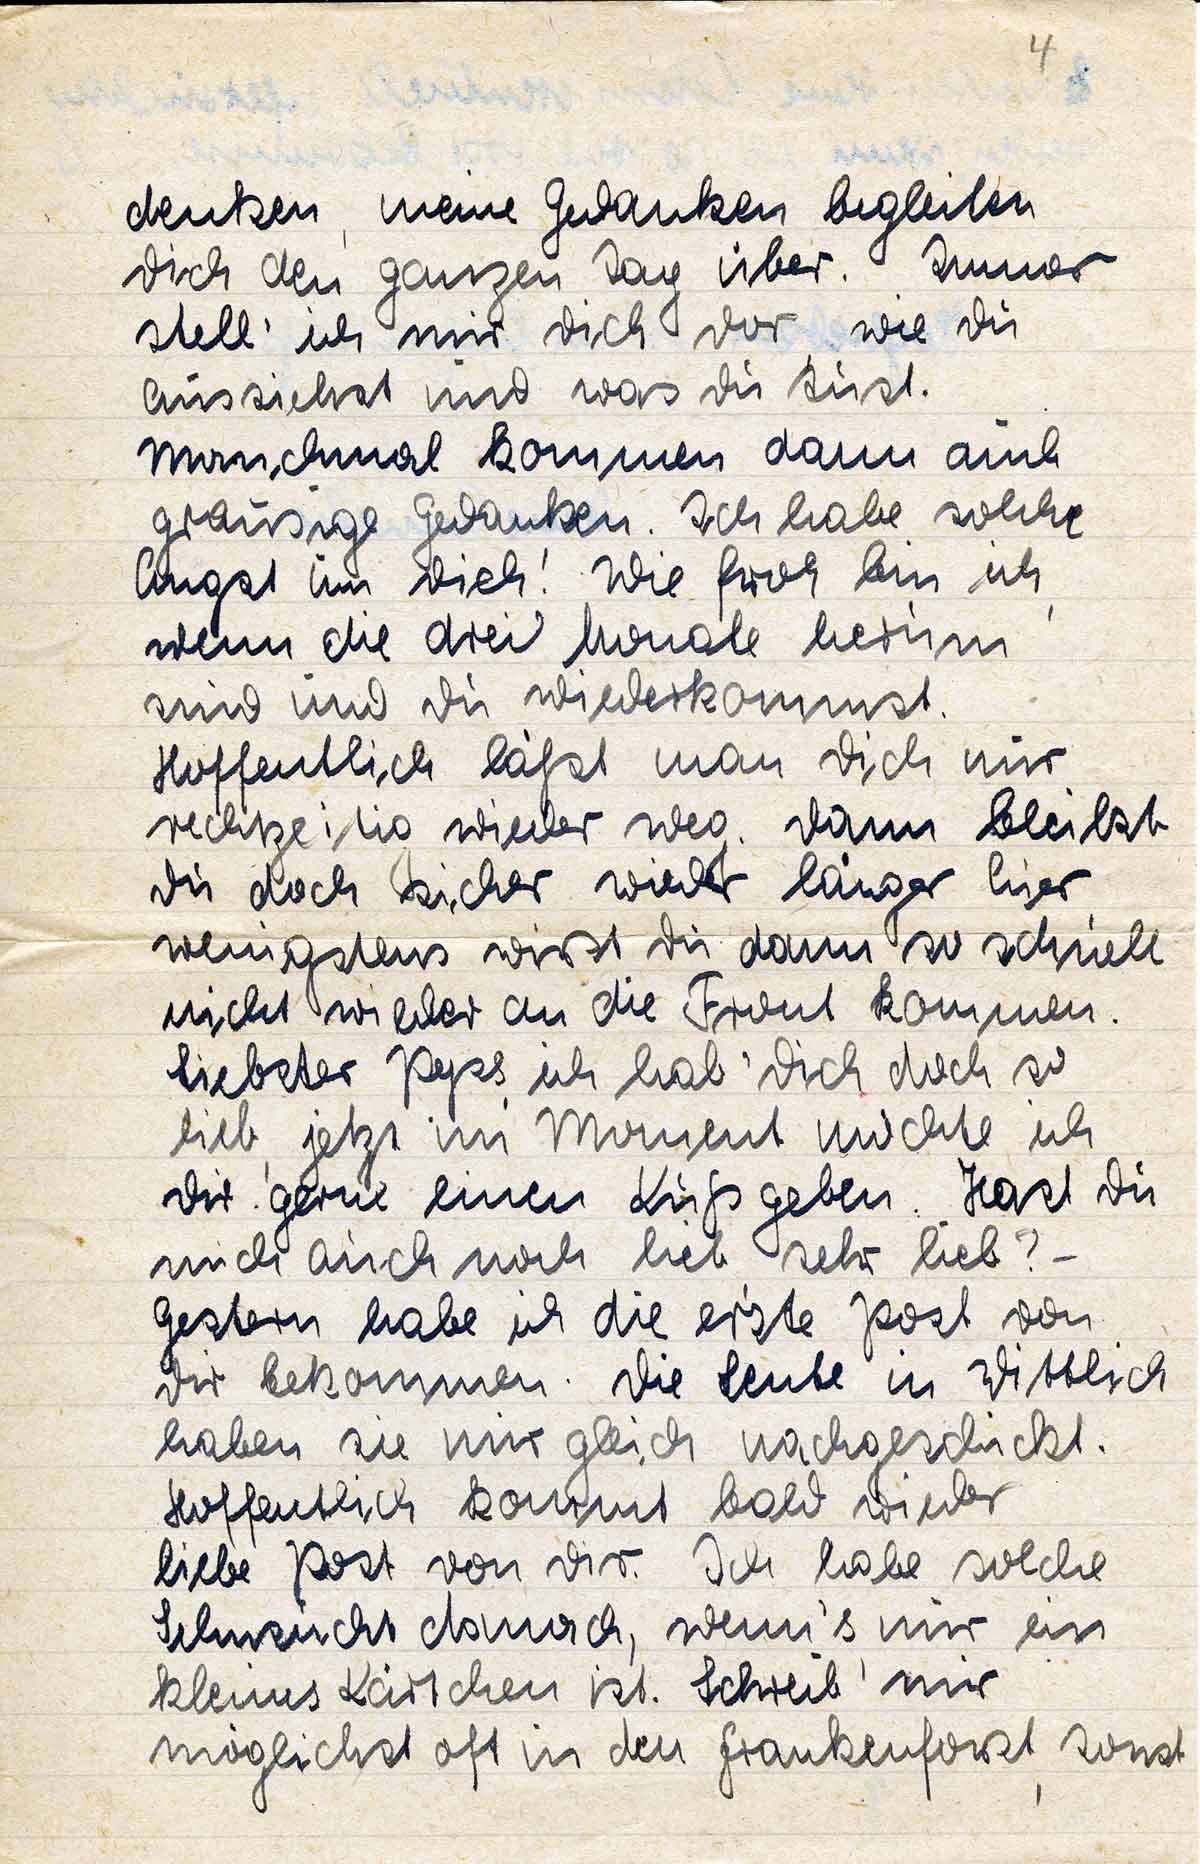 4
denken, meine Gedanken begleiten
dich den ganzen Tag über. Immer
stell' ich mir dich vor, wie du
aussiehst und was du tust.
Manchmal kommen dann auch
grausige Gedanken. Ich habe solche
Angst um dich! Wie froh bin ich,
wenn die drei Monate herum
sind und du wiederkommst.
Hoffentlich läßt man dich nur
rechtzeitig wieder weg. dann bleibst
du doch sicher wieder länger hier
wenigstens wirst du dann so schnell
nicht wieder an die Front kommen.
Liebster Peps, ich hab' dich doch so
lieb, jetzt im Moment möchte ich
dir gerne einen Kuß geben. Hast du
mich auch noch lieb sehr lieb? –
Gestern habe ich die erste Post von
dir bekommen. Die Leute in Wittlich
haben sie mir gleich nachgeschickt.
Hoffentlich kommt bald wieder
liebe Post von dir. Ich habe solche
Sehnsucht danach, wenn's nur ein
kleines Kärtchen ist. Schreib' mir
möglichst oft in den Frankenforst, sonst